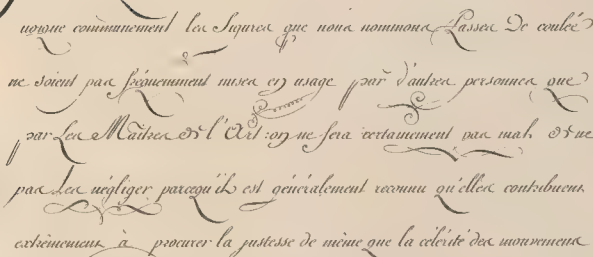 uoique communement les figures que nous nommons Passes De coulée
ne soient pas fréquemment mises en usage par d'autres personnes que
par Les Maîtres de l'Art : on ne fera certainement pas mal de ne
pas Les négliger parcequ'il est généralement reconnu qu'elles contribuent
extrêmement à procurer la justesse de même que la célérité des mouvemens